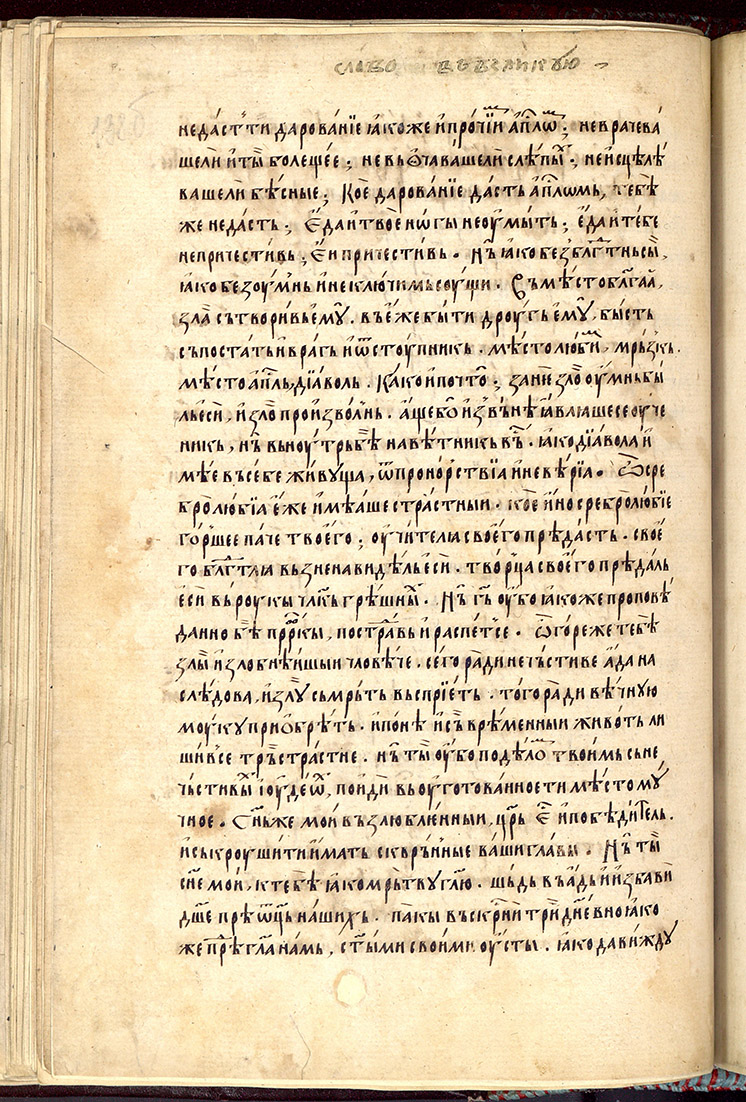 слово въ великꙋю
неда́стъ ти дарова́нїе ꙗ҆коже и҆ про́чїи а҆пⷭ҇лѡⷨ; не врачева́
ше ли и҆ ты̀ боле́щее; не въ ѻ҆́ча ваше ли слѣ́пыⷯ; не и҆сцѣлѣ́
ваше ли бѣ́сные; Ко́е дарова́нїе да́сть а҆пⷭ҇лѡмь, тебѣ̀
же неда́сть; Е҆да̀ и҆ твоѐ но́гы не оу҆мы́ть; е҆да̀ и҆ те́бе
не причести́вь; Е҆́и причести́вь. Нъ̀ ꙗ҆ко безбл҃гⷣтьныи,
ꙗ҆ко безоу́мнь и҆ неключи́мь соу́щи. Въ мѣ́сто бл҃га́а,
зла̀а сътвори́вь е҆моу̀. въ е҆́же бы́ти дроу́гь е҆моу̀, бы́сть
съпоста́ть и҆ вра́гь и҆ ѿстоу́пникь. мѣ́сто лю́бви, мръ́зкь.
мѣ́сто а҆пⷭ҇ль, дїа́воль. Ка́ко и҆ почто̀; зане́ зло̀ оу҆́мнь бы
ль е҆сѝ, и҆ зло̀ произво́лнь. а҆́ще бо и҆звънѣ̀ ꙗ҆влꙗ́ше се оу҆че
ни́кь, нъ̀ вьноу́трьꙋⷣѣ навѣ́тникь бѣ̀. ꙗ҆ко дїа́вола и҆
мѣ́е въ се́бе живꙋ́ща, ѿ пронор́ствїа и҆ невѣ́рїа. Ѽ сре
бролю́бїа е҆́же и҆мѣ́аше стра́стныи. ко́е и҆́но сребролю́бїе
го́ршее па́че твое́го; оу҆чи́телꙗ свое́го прѣда́сть. свое́
го бл҃гⷣтлꙗ възненави́дѣль е҆сѝ. тво́рца свое́го прѣда́ль
е҆сѝ въ роу́кы чл҃кь грѣ́шныⷯ. Нъ̀ гь҃ оу҆́бо ꙗ҆коже проповѣ́
данно бѣ̀ прⷪ҇ркы, постра́вь и҆ распе́т се. Ѽ го́ре же тебѣ̀
злы́и и҆ злобнѣ́ишыи чловѣ́че. сего̀ ра́ди нечьсти́ве а҆́да на
слѣ́дова, и҆ злꙋ́ю съмрьть въспрїе́ть. того̀ ра́ди вѣ́чную
мо́уку приѻбрѣ́ть. и҆ понѐ и҆ съврѣ́менныи живо́ть ли
ши́в се тръстра́стне. нъ̀ ты̀ оу҆́бо по дѣ́лѡⷨ твои́мь съ не
чьсти́выⷨ і҆оу҆де́ѡⷨ, пои́ди въ оу҆гото́ванное ти мѣ́сто мꙋ́
чное. Сн҃ь же мо́и възлю́бленныи, цр҃ь е҆ⷭ҇ и҆ побѣди́тель.
и҆ съкроуши́ти и҆́мать сквръ́нные ва́ши гла́вы. Нъ̀ ты̀
сн҃е мо́и, к тебѣ̀ ꙗ҆ко мръ́тву гл҃ю. шь́дь въ а҆́дь и҆ и҆зба́ви
дш҃е прѣѿ҃ць на́шихь. па́кы въскрⷭ҇ни тридне́вно ꙗ҆ко
же прⷣѣ гл҃а на́мь, ст҃ыми свои́ми оу҆́сты. ꙗ҆ко да ви́ждꙋ